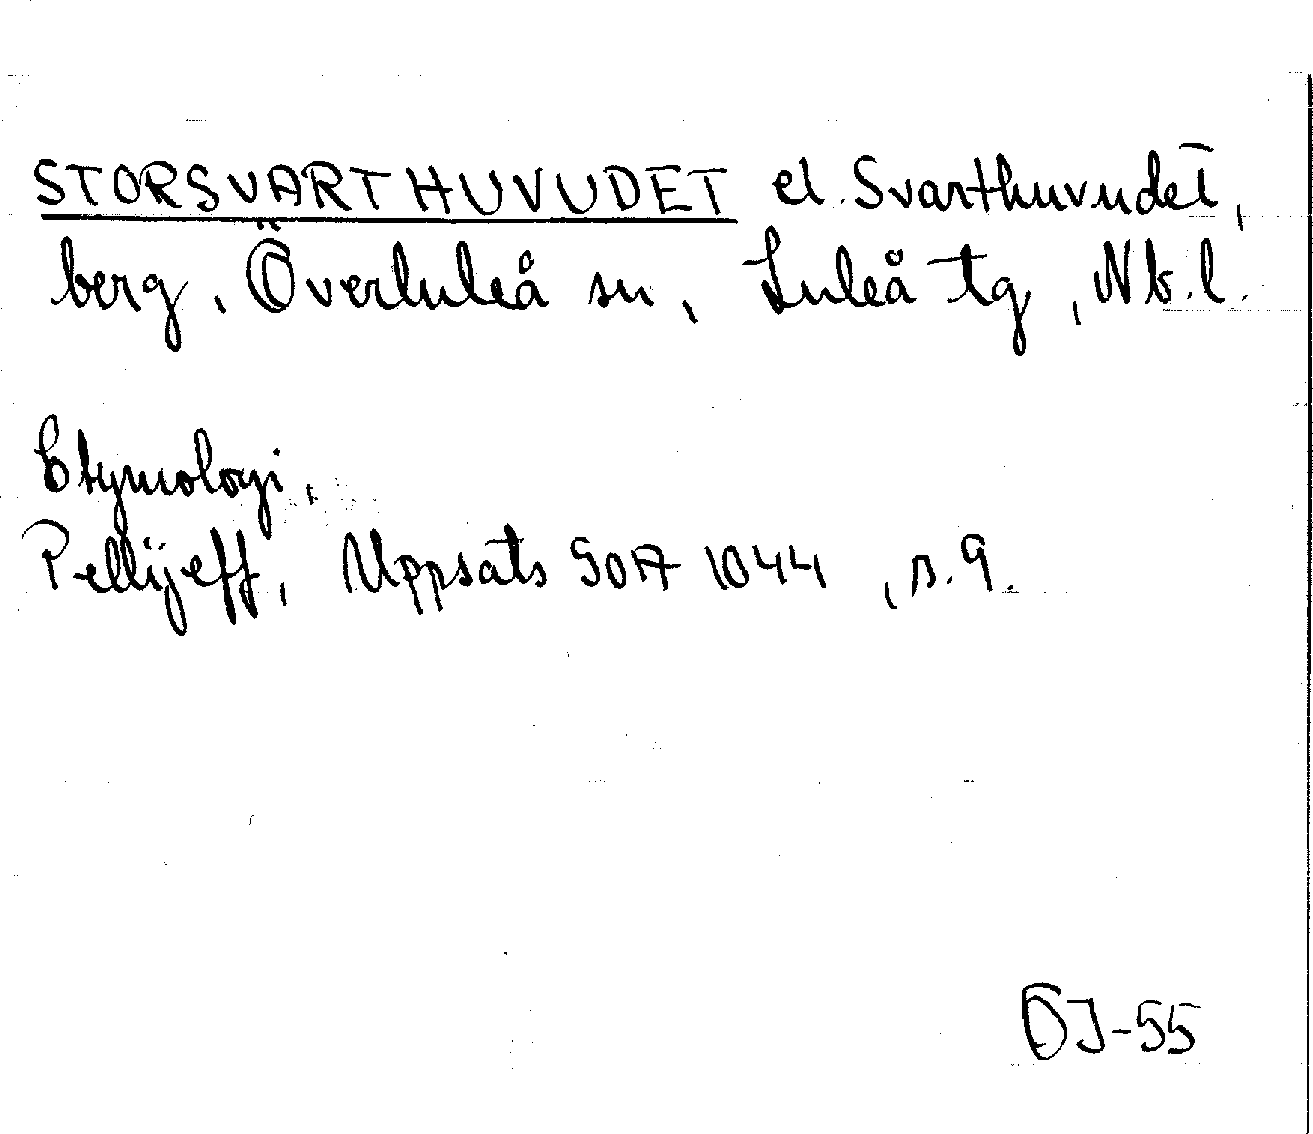 STORSVARTHUVUDET el. Svarthuvudet,
berg, Överluleå sn, Luleå tg, Nb.l.
Etymologi.
Pellijeff, Uppsats SOA 1044, s.9.
DJ-55